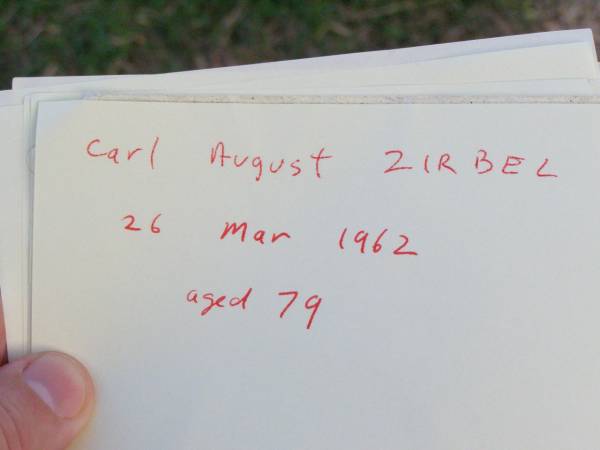 Carl August ZIRBEL
26 Mar 1962
aged 79